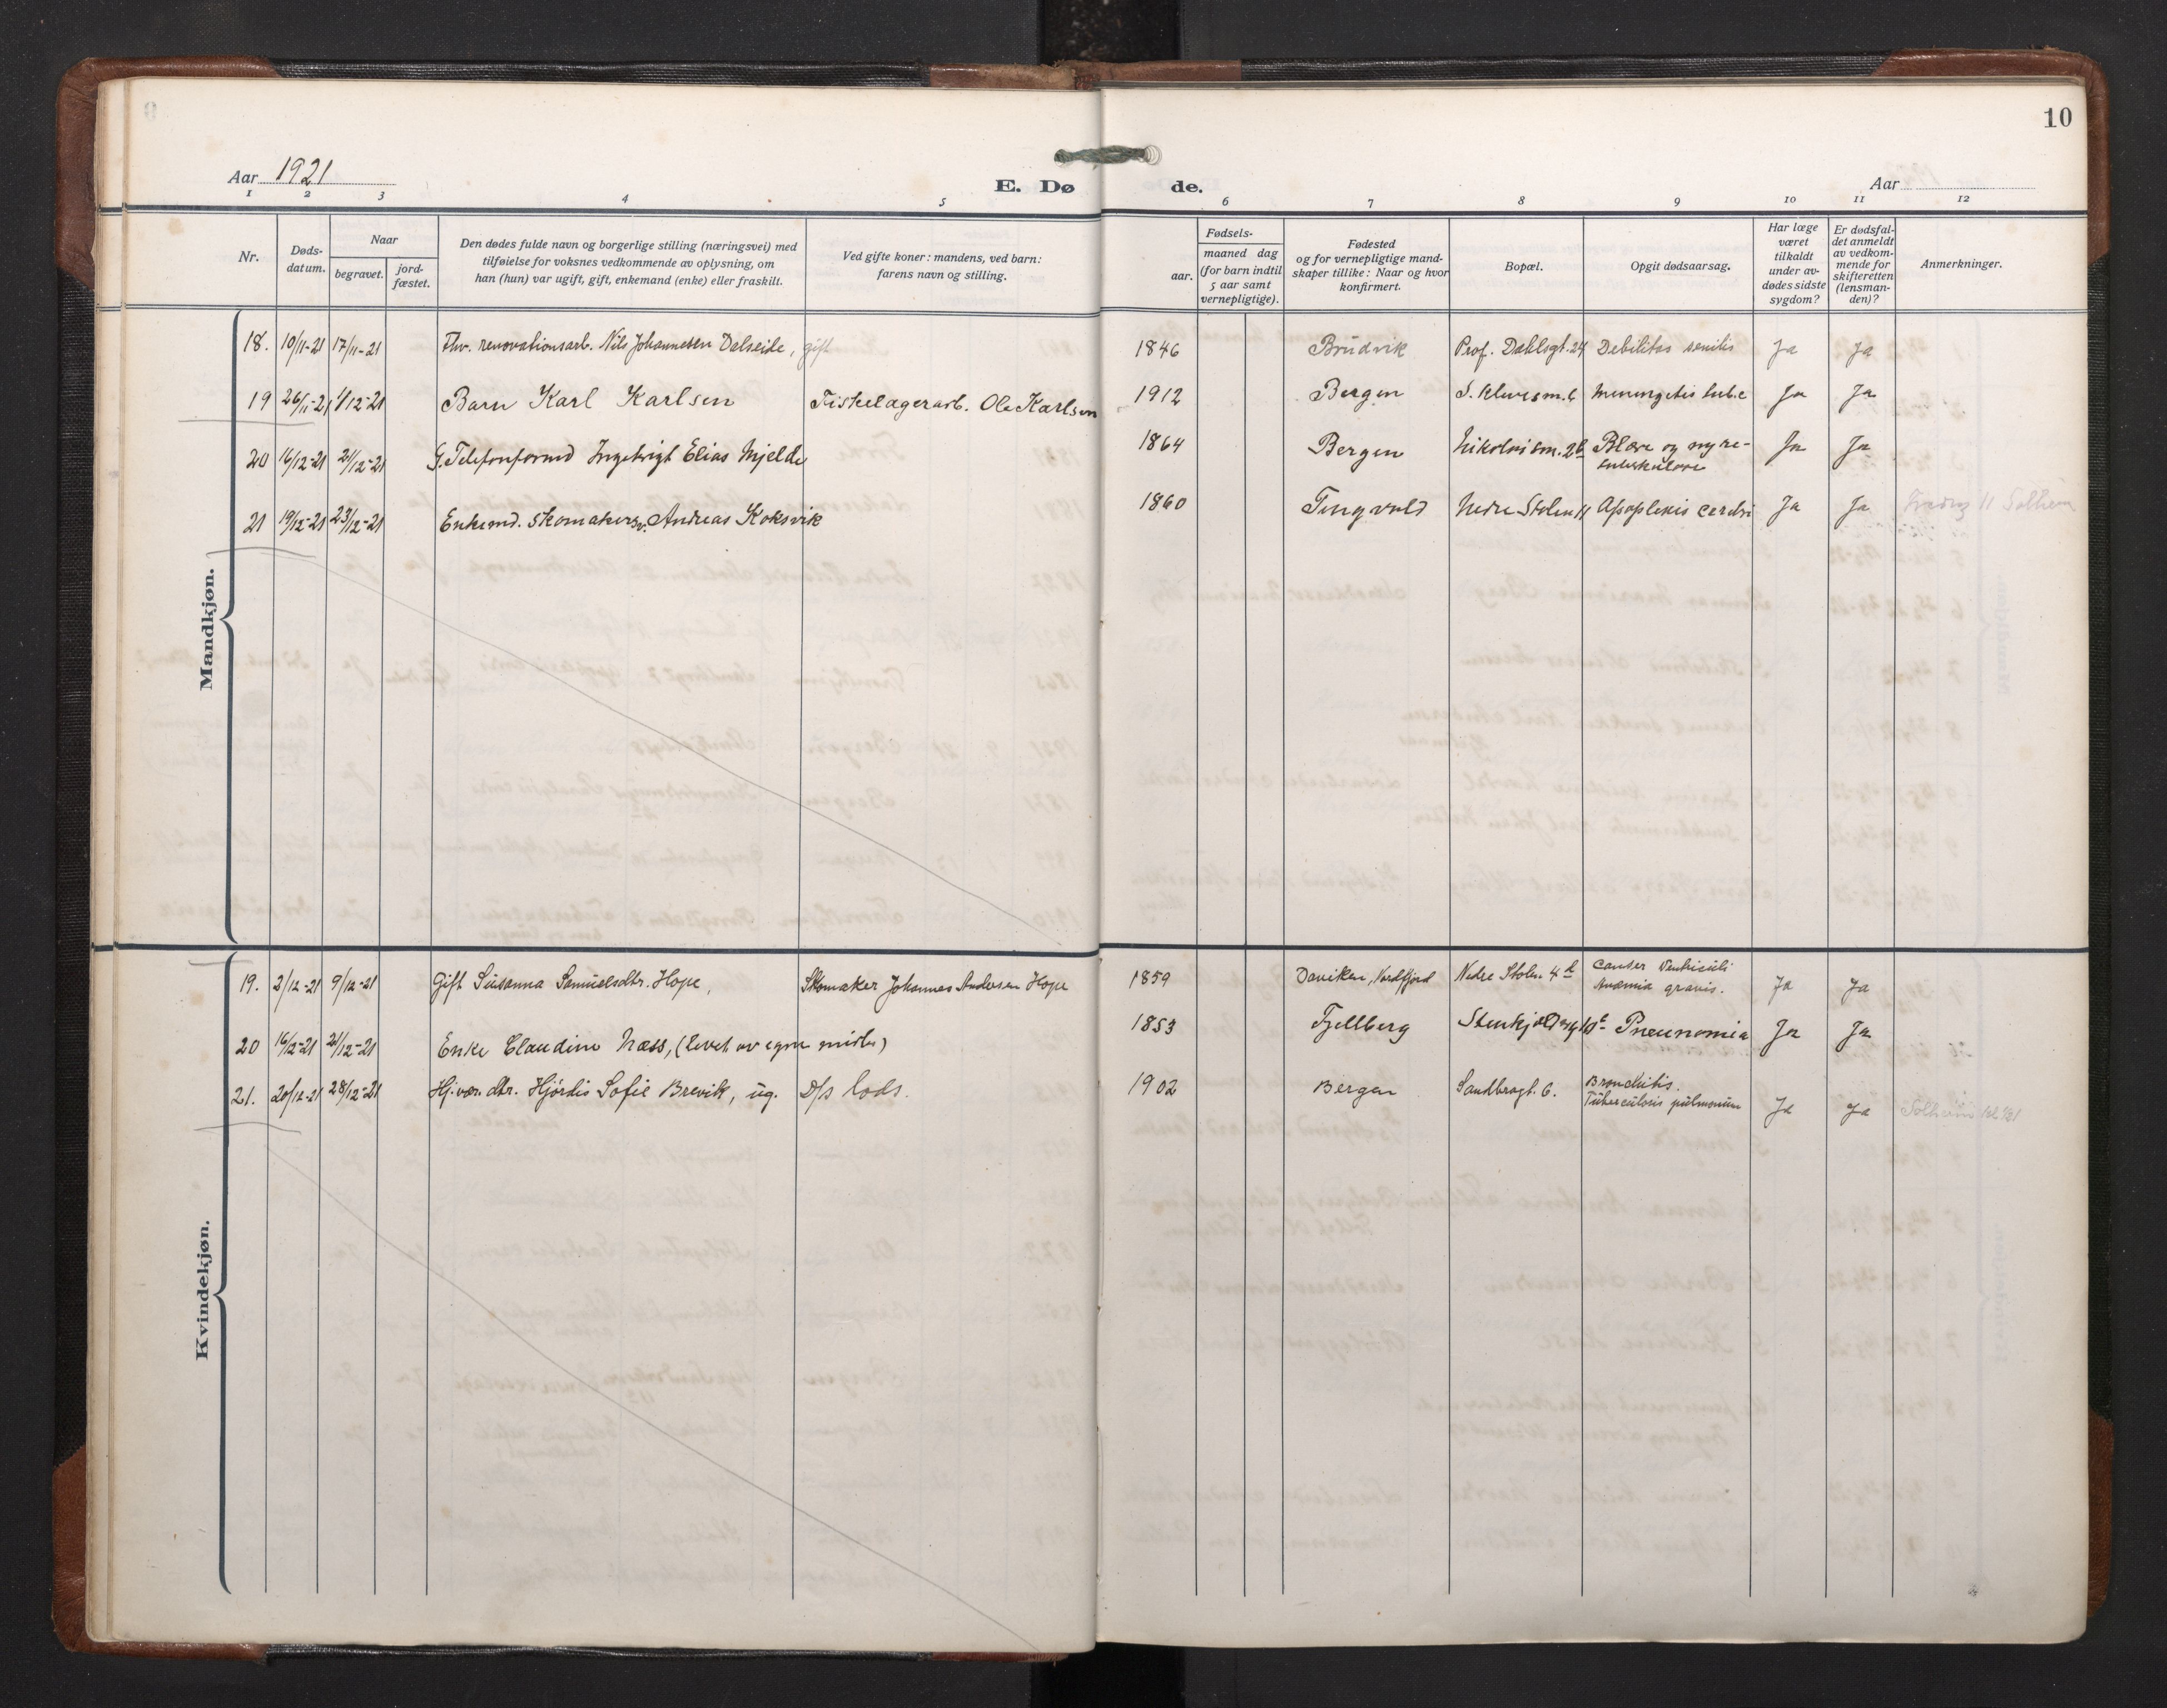 10
Aar 1921
E. Dø de.
Aar
1 2 3 4 5 6 7 8 9 10 11 12
Nr.
Døds-
datum.
Naar
begravet.
jord-
fæstet.
Den dødes fulde navn og borgerlige stilling (næringsvei) med
tilføielse for voksnes vedkommende av oplysning, om
han (hun) var ugift, gift, enkemand (enke) eller fraskilt.
Ved gifte koner: mandens, ved barn:
farens navn og stilling.
Fødsels-
aar.
maaned dag
(for barn indtil
5 aar samt
vernepligtige).
Fødested
og for vernepligtige mand-
skaper tillike: Naar og hvor
konfirmert.
Bopæl.
Opgit dødsaarsag.
Har læge
været
tilkaldt
under av-
dødes sidste
sygdom?
Er dødsfal-
det anmeldt
av vedkom-
mende for
skifteretten
(lensman-
den)?
Anmerkninger.
Mandkjøn.
18. 10/11-21 17/11-21 Fhv. renovationsarb. Nils Johannesen Dalseide, gift 1846 Brudvik Prof. Dahlsgt. 24 Debilitas senilis Ja Ja
19 26/11-21 1/12-21 Barn Karl Karlsen Fiskelagerarb. Ole Karlsen 1912 Bergen Ja Ja
20 16/12-21 21/12-21 G. Telefonformd Ingebrigt Elias Mjelde 1864 Bergen Nikolaism. 2b Blære og nyre-
tuberkulose Ja Ja
21 19/12-21 23/12-21 Enkemd. Skomakersv. Andreas Koksvik 1860 Tingvold Nedre Stolen 11 Apoplexis cerebri Ja Ja Fredag 11 Solheim
Kvindekjøn.
19. 2/12-21 9/12-21 Gift Susanna Samuelsdtr. Hope, Skomaker Johannes Andersen Hope 1859 Daviken, Nordfjord Nedre Stoln. 4b Canser Ventriculi
Anæmia gravis. Ja Ja
20 16/12-21 21/12-21 Enke Claudine Næss, (Levet av egne midler) 1853 Fjellberg Pneunomia Ja Ja
21. 20/12-21 28/12-21 Hj.vær. dtr. Hjørdis Sofie Brevik, ug. D/s lods. 1902 Bergen Sandbrogt. 6. Bronchitis.
Tuberculosis pulmonum Ja Ja Solheim